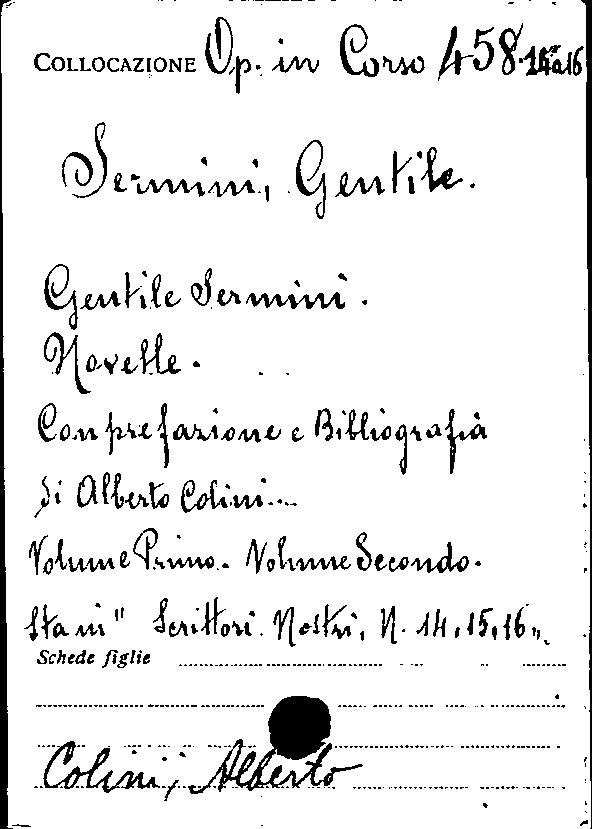 COLLOCAZIONE Op. in Corso 458. 14 a 16
Sermini, Gentile.
Gentile Sermini.
Novelle.
Con prefazione e Bibliografia
di Alberto Colini...
Volume Primo. Volume Secondo.
Sta in " Scrittori Nostri, N. 14, 15, 16 ".
Schede figlie
Colini, Alberto